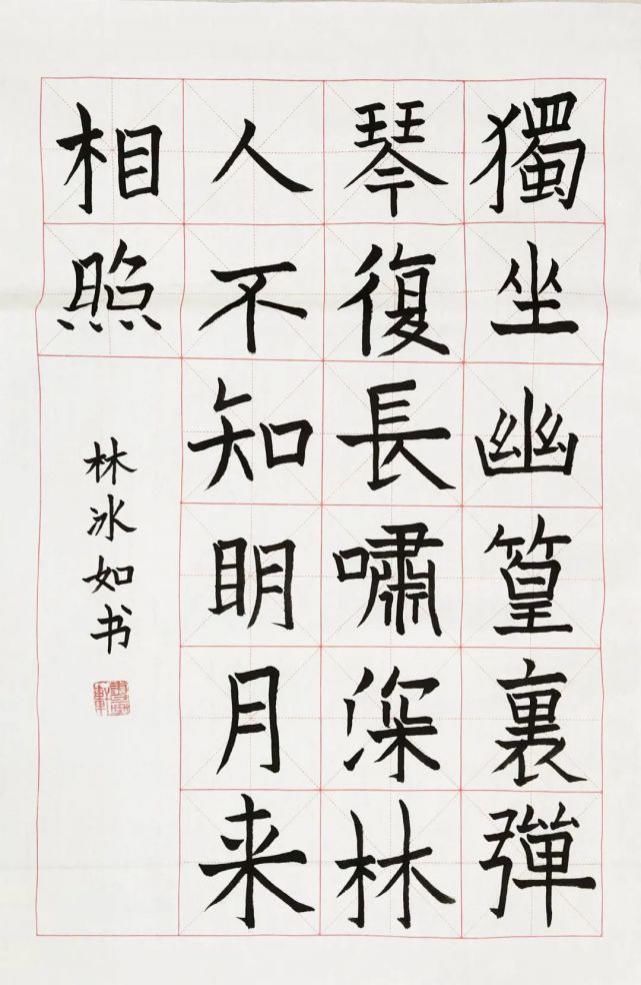 獨坐幽篁裏彈
琴復長嘯深林
人不知明月来
相照
林冰如书